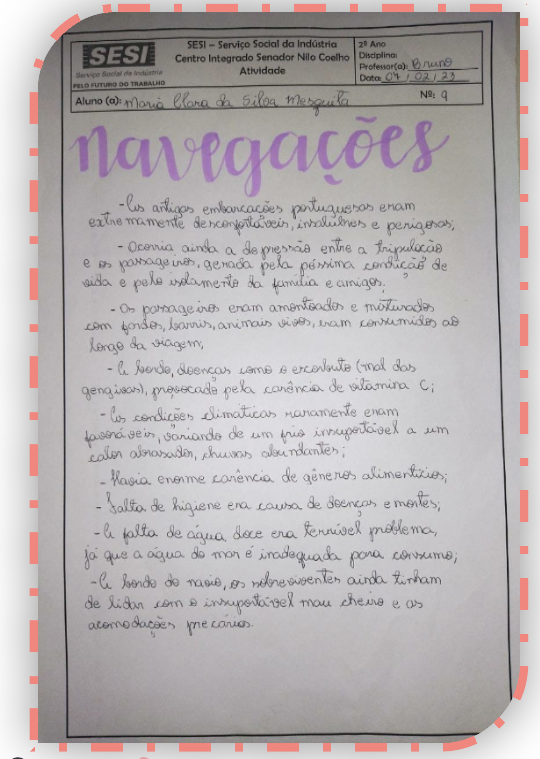 SESI
Serviço Social da Indústria
PELO FUTURO DO TRABALHO
SESI – Serviço Social da Indústria
Centro Integrado Senador Nilo Coelho
Atividade
2º Ano
Disciplina:
Professor(a): Bruno
Data: 04/02/23
Aluno (a): Maria Clara da Silva Mesquita
Nº: 9
Navegações
- As antigas embarcações portuguesas eram
extremamente desconfortáveis, insalubres e perigosas;
- Ocorria ainda a depressão entre a tripulação
e os passageiros, gerada pela péssima condição de
vida e pelo isolamento da família e amigos.
- Os passageiros eram amontoados e misturados
com fardos, barris, animais vivos, eram consumidos ao
longo da viagem;
- A bordo, doenças como o escorbuto (mal das
gengivas), provocado pela carência de vitamina C;
- As condições climáticas raramente eram
favoráveis, variando de um frio insuportável a um
calor abrasador, chuvas abundantes;
- Havia enorme carência de gêneros alimentícios;
- Falta de higiene era causa de doenças e mortes;
- A falta de água doce era terrível problema,
já que a água do mar é inadequada para consumo;
- A bordo do navio, os sobreviventes ainda tinham
de lidar com o insuportável mau cheiro e as
acomodações precárias.